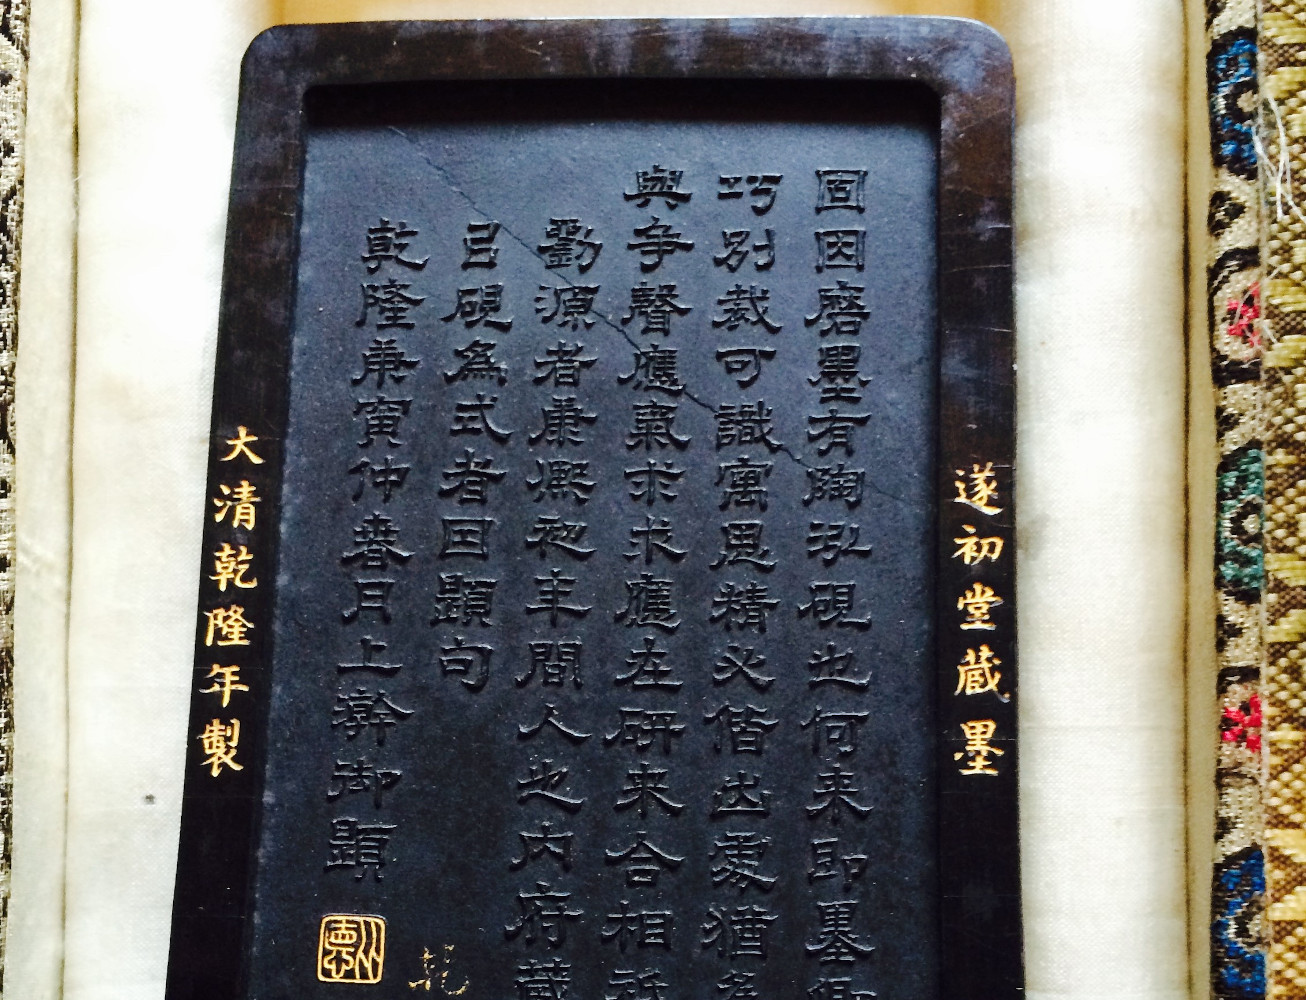 遂初堂蔵墨
固因磨墨有陶泓硯也何来即墨卿
巧別裁可識寓思精必偕出處猶名
與争聲應氣求求應在研来合相
劉源者康熙初年間人也内府蔵
㠯硯為式者因題句
乾隆庚寅仲春月上澣御題
乾
大清乾隆年製